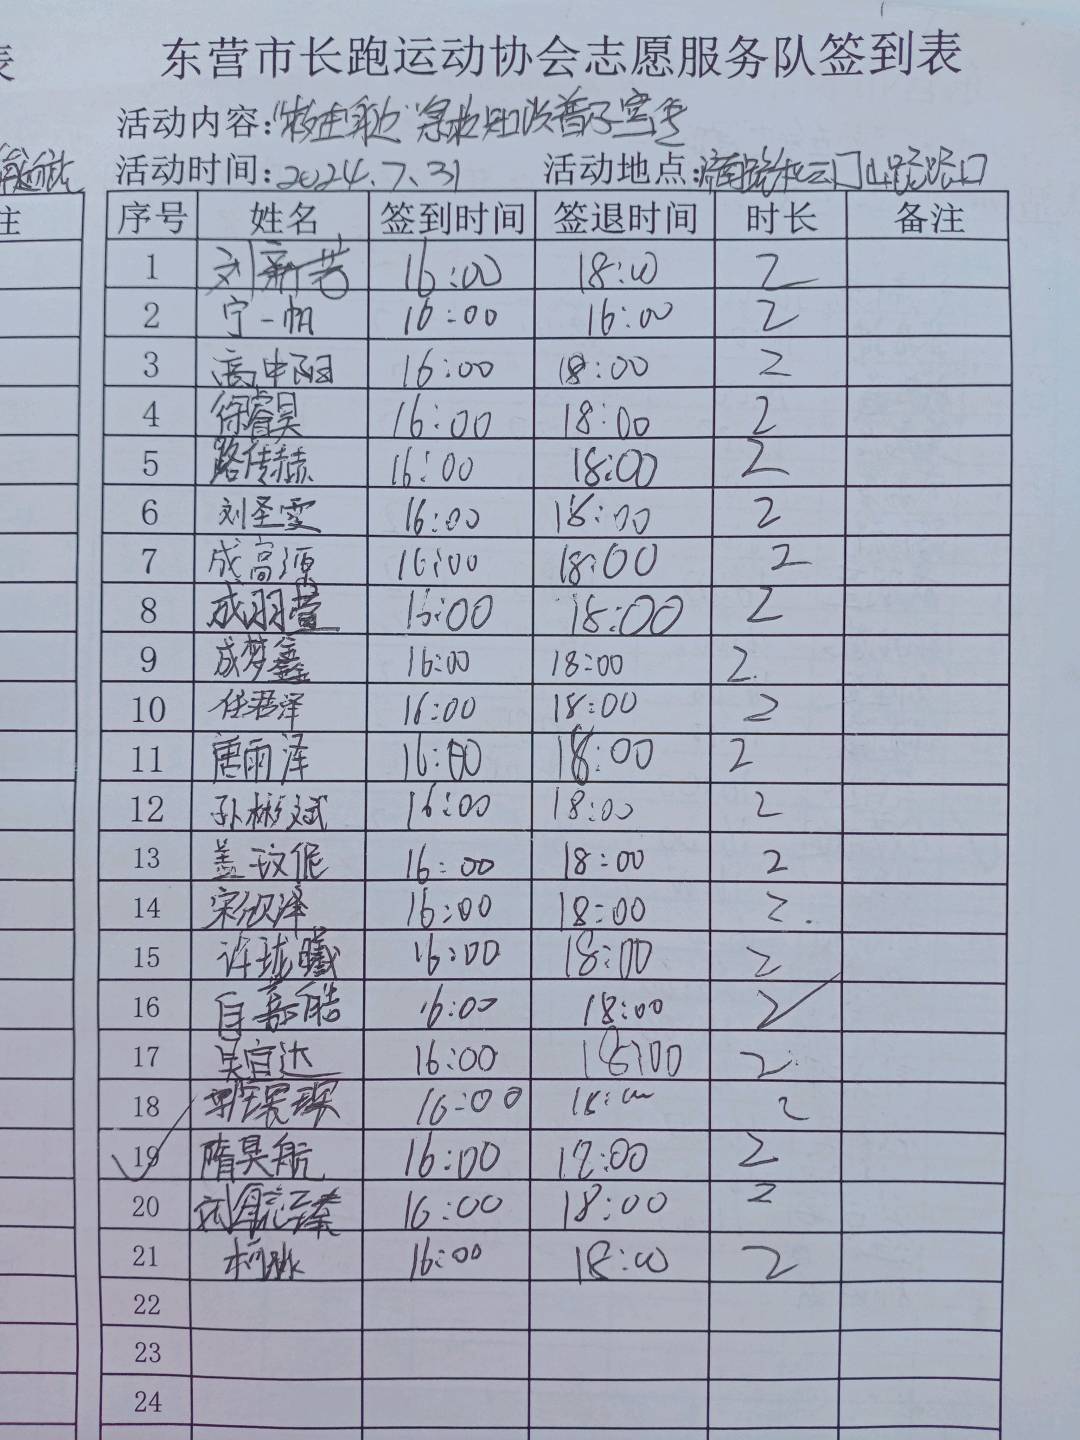 东营市长跑运动协会志愿服务队签到表
活动内容:急救知识普及宣传
活动时间:2024.7.31 活动地点:路口
序号 姓名 签到时间 签退时间 时长 备注
1 刘新芳 16:00 18:00 2
2 宁一帆 16:00 16:00 2
3 高中阳 16:00 18:00 2
4 徐睿昊 16:00 18:00 2
5 路传赫 16:00 18:00 2
6 刘圣雯 16:00 18:00 2
7 成高源 16:00 18:00 2
8 成羽萱 16:00 18:00 2
9 成梦鑫 16:00 18:00 2
10 任君泽 16:00 18:00 2
11 唐雨泽 16:00 18:00 2
12 孙彬斌 16:00 18:00 2
13 盖玟伲 16:00 18:00 2
14 宋欣泽 16:00 18:00 2
15 许珑曦 16:00 18:00 2
16 16:00 18:00 2
17 吴宜达 16:00 18:00 2
18 16:00 18:00 2
19 隋昊航 16:00 18:00 2
20 16:00 18:00 2
21 16:00 18:00 2
22
23
24